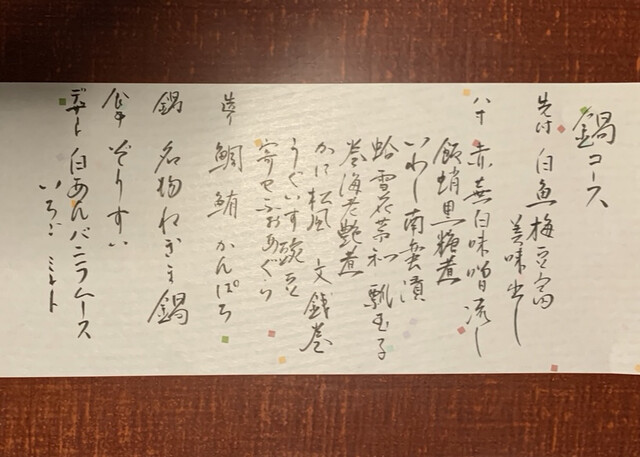 鍋コース
先付 白魚梅豆富
美味出し
八寸 赤蕪白味噌流し
飯蛸黒糖煮
いわし南蛮漬
蛤雪花菜和 瓢玉子
巻海老艶煮
かに松風 文銭巻
うぐいす豌豆
寄せふぉあぐら
造り 鯛 鮪 かんぱち
鍋 名物ねぎま鍋
食事 ぞうすい
デザート 白あんバニラムース
いちご ミント